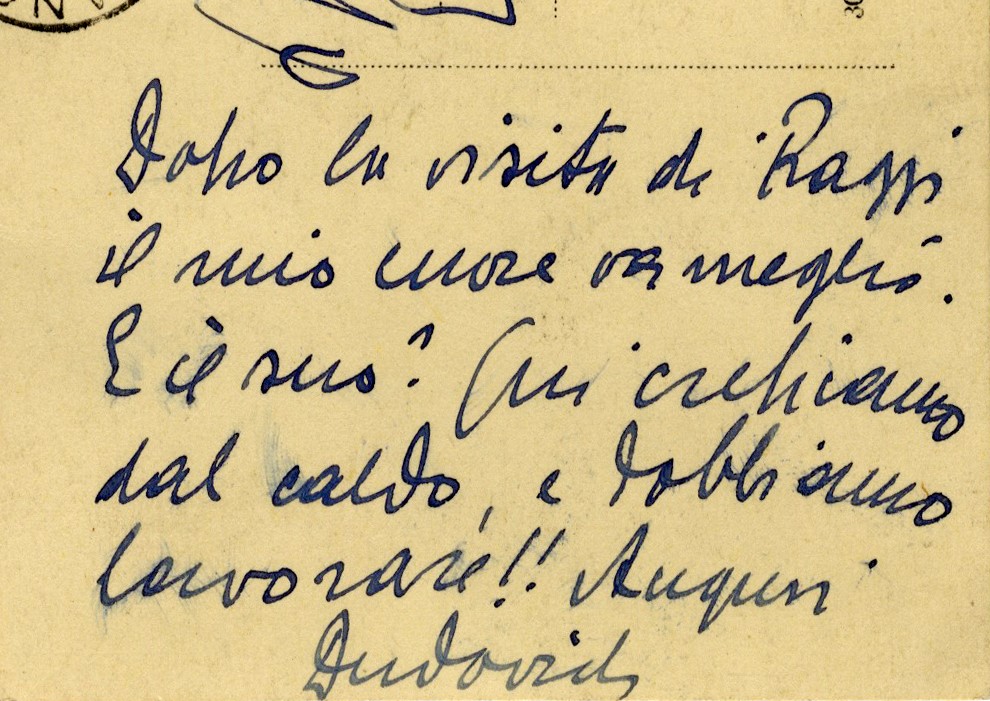 Dopo la visita di Raggi
il mio cuore va meglio.
E il suo? Qui crepiamo
dal caldo, e dobbiamo
lavorare!! Auguri
Dudovich